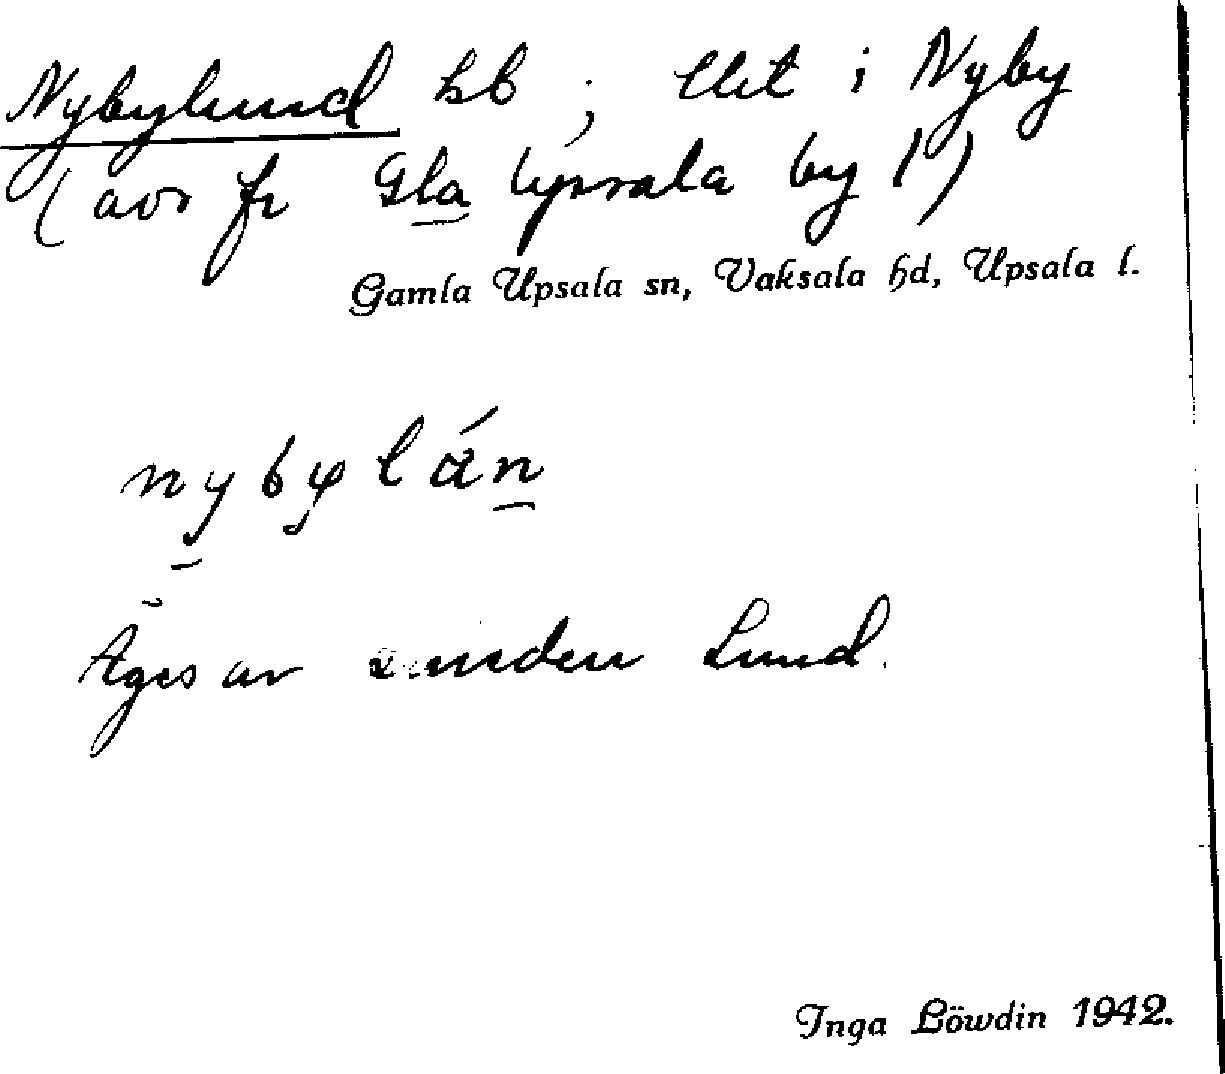 Nybylund hb; litt i Nyby
(avs fr Gla Upsala by 1)
Gamla Upsala sn, Vaksala hd, Upsala l.
Äges av Lund
Inga Löwdin 1942.